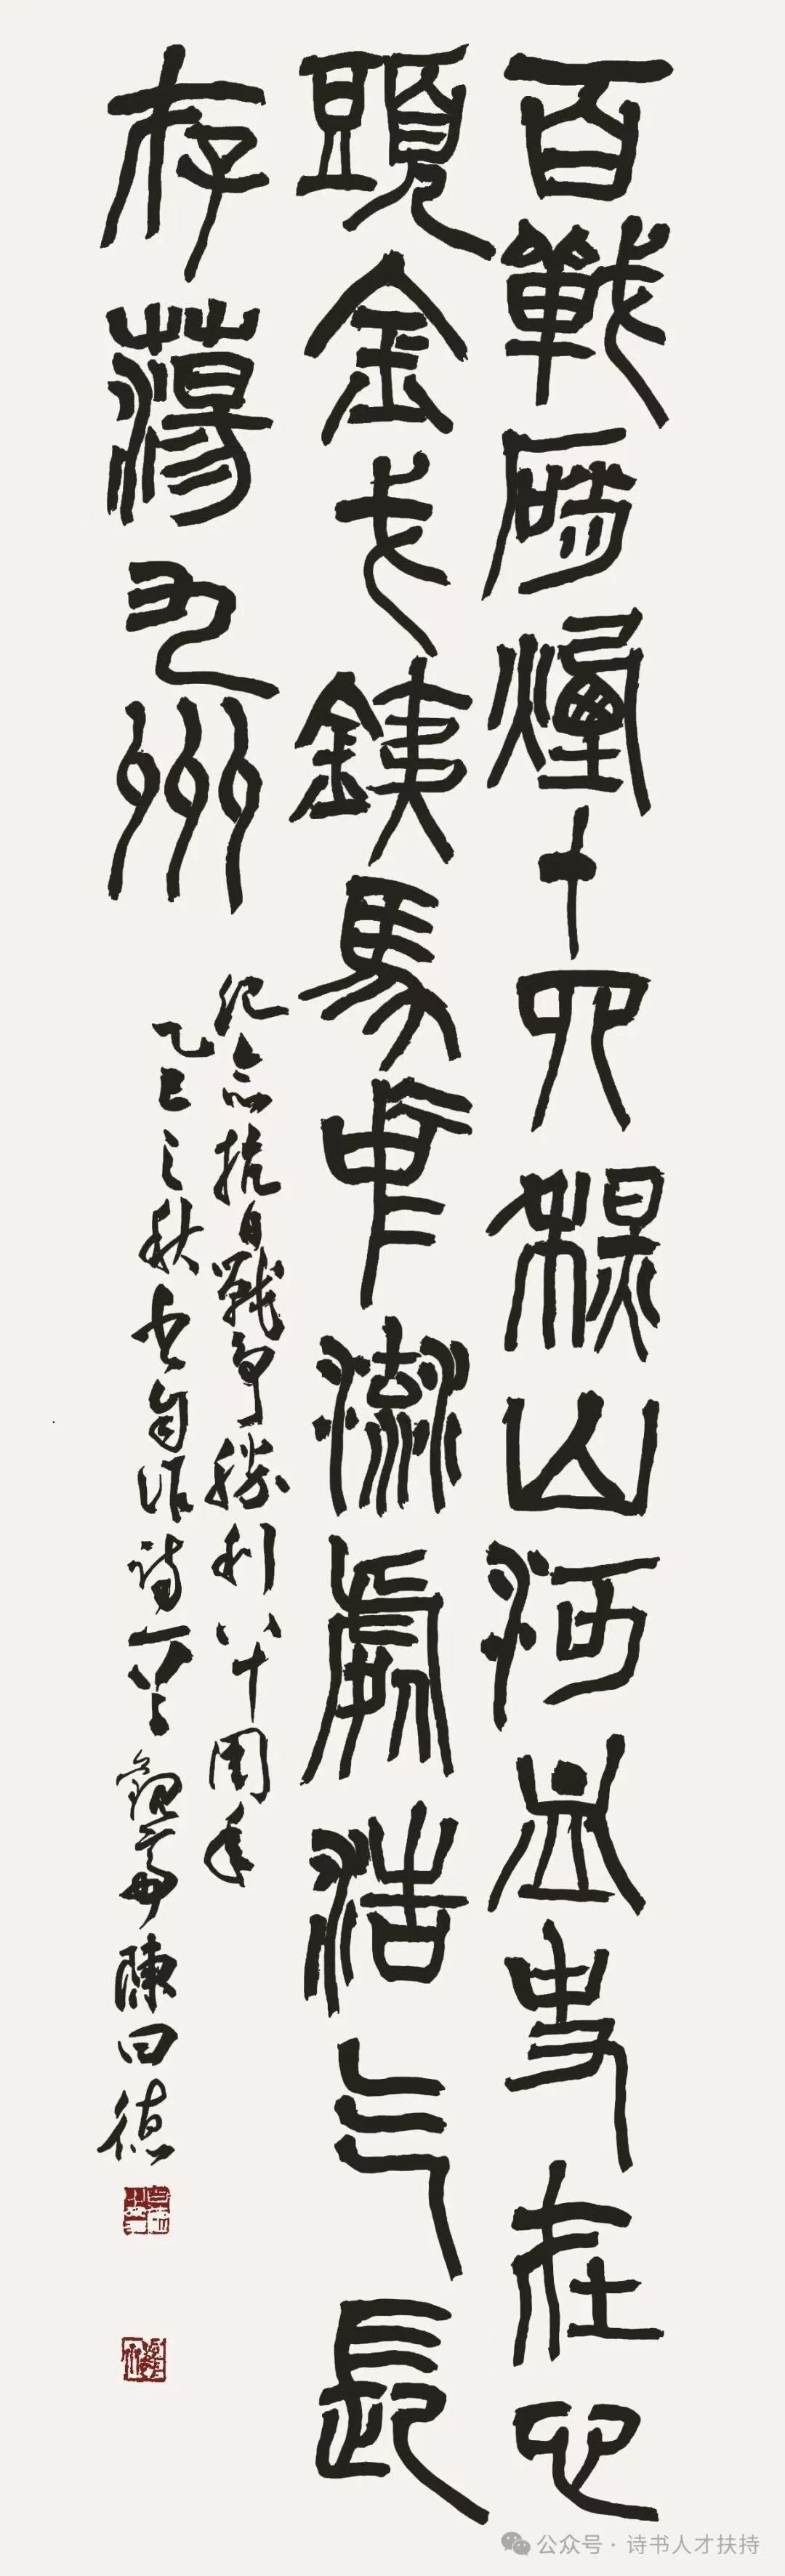 百戰硝煙十四秋山河血史在心
頭金戈鐵馬流處浩氣長
存蕩九州
紀念抗日戰爭勝利八十周年
乙巳之秋書自作詩一首觀齋陳德
公众号·诗书人才扶持